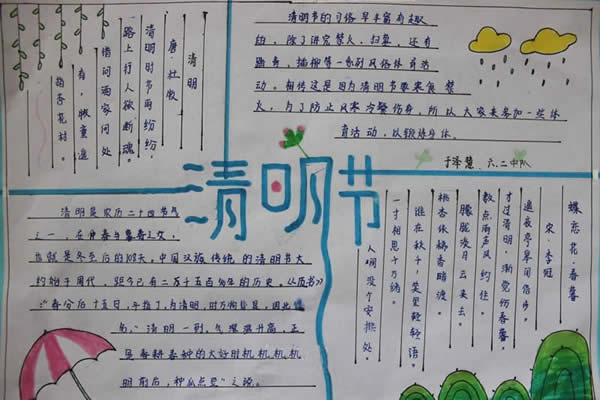 清明
唐·杜牧
清明时节雨纷纷，
路上行人欲断魂。
借问酒家何处
有，牧童遥
指杏花村。
清明节的习俗是丰富有趣
的，除了讲究禁火、扫墓，还有
踏青、插柳等一系列风俗体育活
动。相传这是因为清明节要寒食禁
火，为了防止风寒冷餐伤身，所以大家来参加一些体
育活动，以锻炼身体。
于泽慧 六.二中队
清明节
清明是农历二十四节气
之一，在仲春与暮春之交，
也就是冬至后的108天。中国汉族传统的清明节大
约始于周代，距今已有二千五百多年的历史。《历书》
:“春分后十五日，斗指丁，为清明，时万物皆显，因此得
名。”清明一到，气温升高，正
是春耕春种的大好时机机机机
明前后，种瓜点豆”之说。
蝶恋花·春暮
宋·李冠
遥夜亭皋闲信步。
才过清明，渐觉伤春暮。
数点雨声风约住。
朦胧淡月云来去。
桃杏依稀香暗渡。
谁在秋千，笑里轻轻语。
一寸相思千万绪。
人间没个安排处。